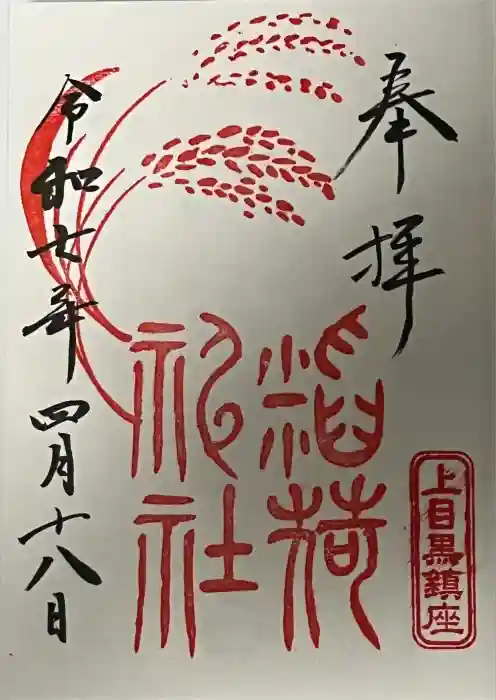 奉拝
稲荷
祀社
上目黒鎮座
令和七年四月十八日